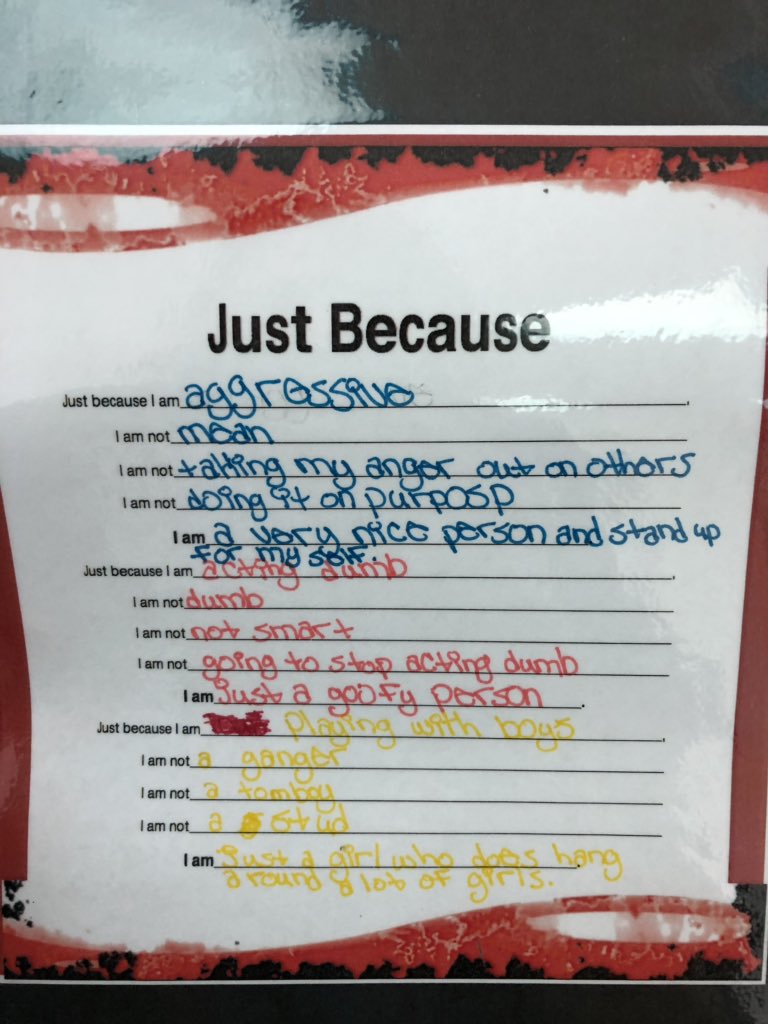 Just Because
Just because I am aggressive.
I am not mean
I am not talking my anger out on others
I am not doing it on purposp
I am a very nice person and stand up
for my self.
Just because I am acting dumb.
I am not dumb
I am not not smart
I am not going to stop acting dumb
I am Just a goofy person.
Just because I am Playing with boys.
I am not a ganger
I am not a tomboy
I am not a stud
I am Just a girl who does hang
around a lot of girls.